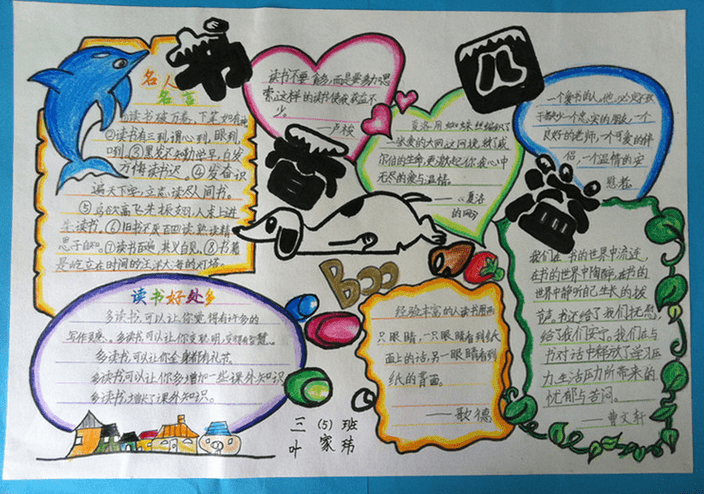 书
香
四
溢
名人
名言
①读书破万卷,下笔如有神
②读书有三到,谓心到,眼到,
口到。③黑发不知勤学早,白发
方悔读书迟。④发奋识
遍天下字,立志读尽人间书。
⑤鸟欲高飞先振翅,人求上进
先读书。⑥旧书不厌百回读,熟读精
思子自知。⑦读书百遍,其义自见。⑧书籍
是屹立在时间的汪洋大海的灯塔。
读书不要贪多,而是要多加思
索,这样的读书使我获益不
少。
——卢梭
夏洛用蜘蛛丝编织了
一张爱的大网,这网挽救了威
尔伯的生命,更激起你我心中
无尽的爱与温情。
——《夏洛
的网》
一个爱书的人,他必定不致
于缺少一个忠实的朋友,一个
良好的老师,一个可爱的伴
侣,一个温情的安
慰者。
读书好处多
多读书,可以让你觉得有许多的
写作灵感。多读书,可以让你变聪明,变得有智慧。
多读书,可以让你全身都有礼节。
多读书可以让你多增加一些课外知识。
多读书,增长了课外知识。
Boo
经验丰富的人读书用两
只眼睛,一只眼睛看到纸
面上的话,另一眼睛看到
纸的背面。
——歌德
我们在书的世界中流连,
在书的世界中陶醉,在书的
世界中静听自己生长的拔
节声。书还给了我们抚慰,
给了我们安宁。我们在与
书对话中释放了学习压
力,生活压力所带来的
忧郁与苦闷。
——曹文轩
三(5)班
叶家玮